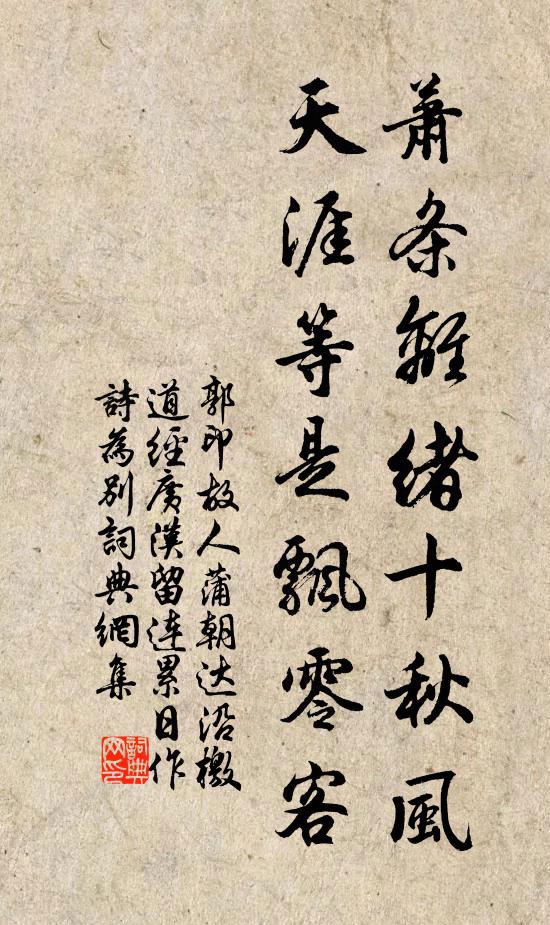 萧条離緒十秋風
天涯等是飄零客
郭印故人蒲朝达沿檄
道經廣漢留連累日作
詩為别詞典網集
詞典网印